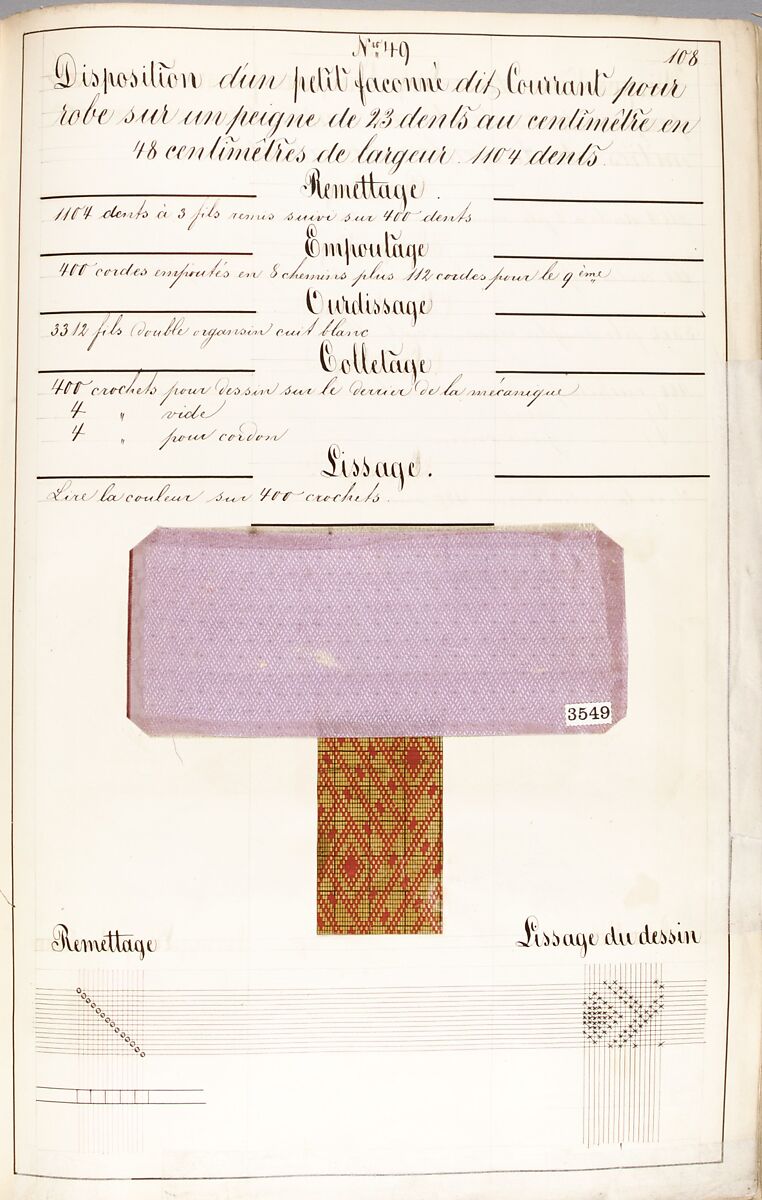 Nro 49
108
Disposition d'un petit façonné dit Courrant pour
robe sur un peigne de 23 dents au centimètre en
48 centimètres de largeur. 1104 dents.
Remettage.
1104 dents à 3 fils remis suivi sur 400 dents
Empoutage
400 cordes empoutés en 8 chemins plus 112 cordes pour le 9ème
Ourdissage
3312 fils double organsin cuit blanc
Colletage
400 crochets pour dessin sur le derrier de la mécanique
4 " vide
4 " pour cordon
Lissage.
Lire la couleur sur 400 crochets.
3549
Remettage
Lissage du dessin